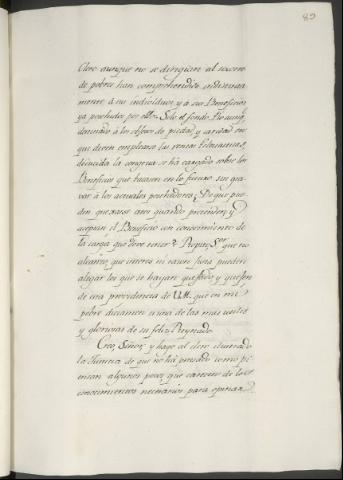 89
Clero aunque no se dirigian al socorro
de pobres han comprehendido indistinta
mente á sus individuos, y á sus Beneficios
ya posehidos por ellos. Solo el fondo Pio auxiliar
destinado á los objetos de piedad y caridad en
que deven emplearse las rentas Eclesiasticas,
deducida la congrua se há cargado sobre los
Beneficios que vacasen en lo futuro sin gra-
var á los actuales posehedores; De que pue-
den quexarse estos quando pretenden, y
aceptan el Beneficio con conocimiento de
la carga que deve tener? Repito, Señor que no
alcanzo que interes ni causa justa puedan
alegar los que se hayan quejado y quejen
de una providencia de V.M. que en mi
pobre dictamen es una de las mas utiles
y gloriosas de su feliz Reynado.
Creo, Señor, y hago al clero ilustrado
la Justicia de que no há pensado como pi-
ensan algunos pocos que carecen de los
conocimientos necesarios para opinar